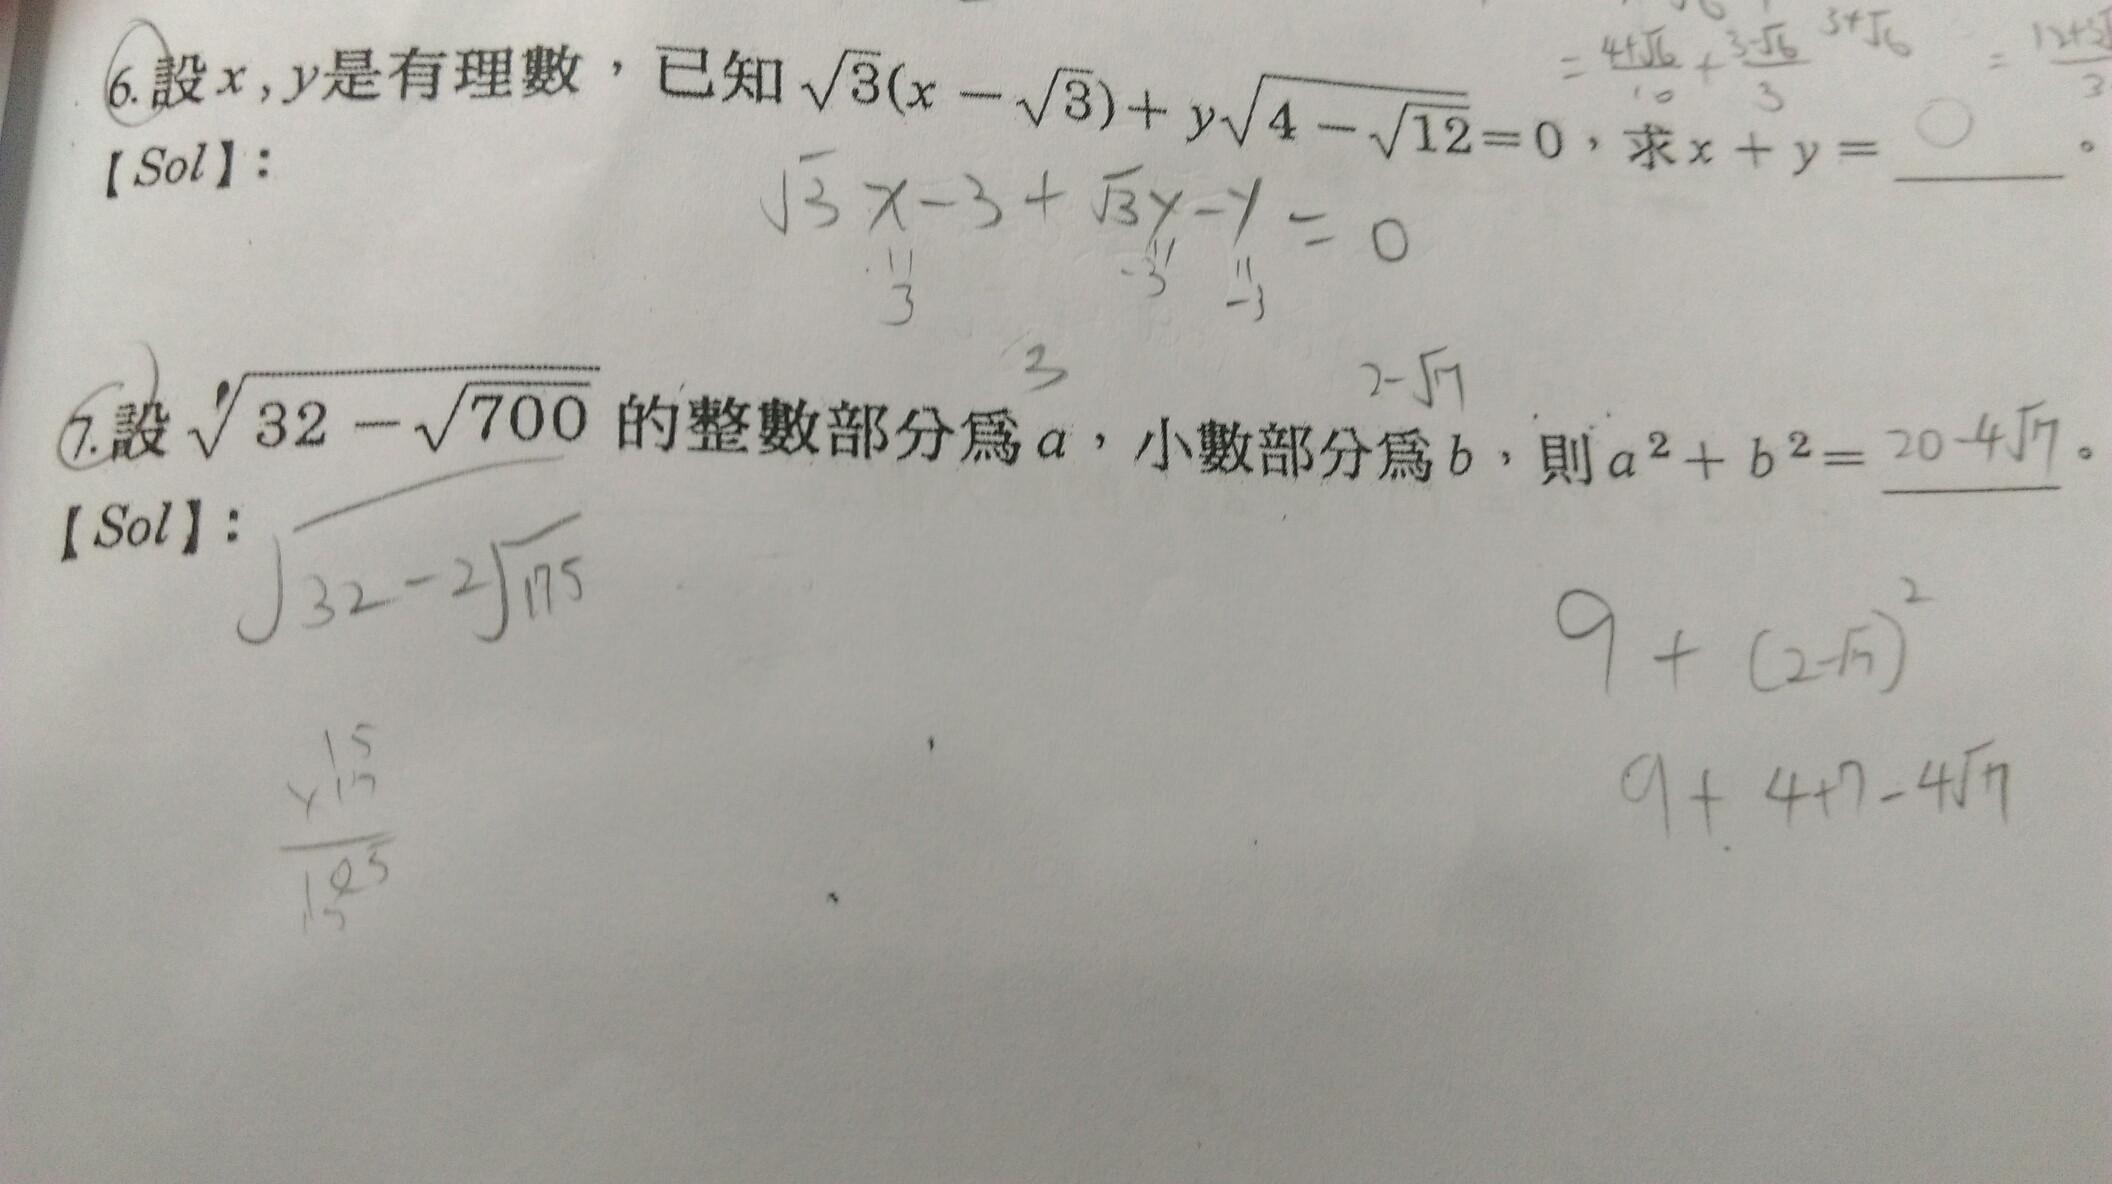 = 4+√6/10 + 3-√6/3 3+√6 =
6. 設x,y是有理數，已知√3(x-√3)+y√(4-√12)=0，求x+y= 0 。
【Sol】:
√3 x-3+√3y-y=0
" " "
3 -3 -3
3 2-√7
7. 設√(32-√700)的整數部分爲a，小數部分爲b，則a²+b²= 20-4√7 。
【Sol】:
√(32-2√175)
9+(2-√7)²
15
9+4+7-4√7